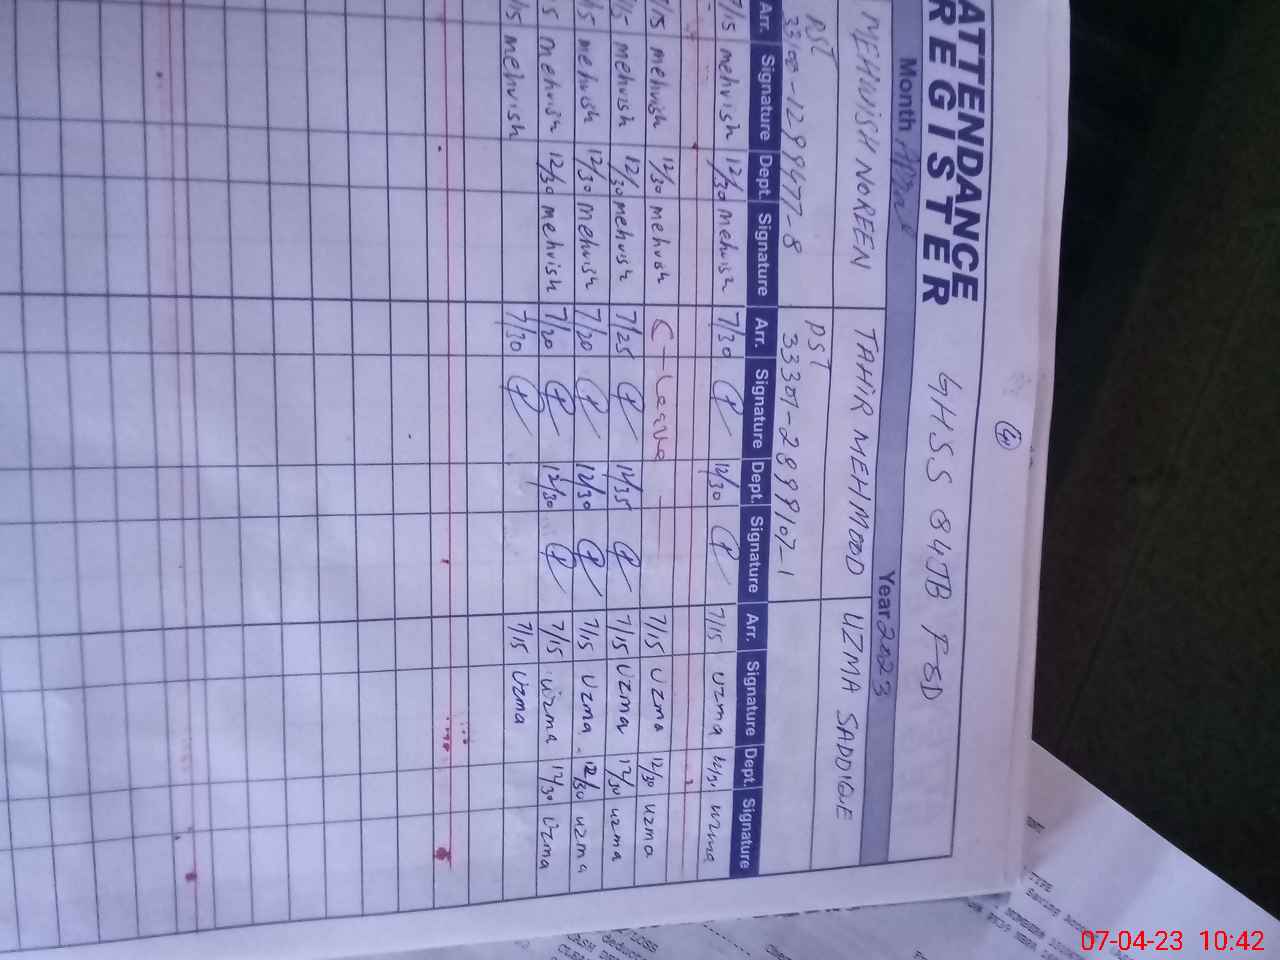 ④
ATTENDANCE
REGISTER GHSS 84JB FSD
Month April Year 2023
MEHWISH NOREEN TAHIR MEHMOOD UZMA SADDIQE
PST PST
33301-2899107-1
Arr. Signature Dept. Signature Arr. Signature Dept. Signature Arr. Signature Dept. Signature
7/15 mehvish 12/30 mehvish 7/30 12/30 7/15 uzma uzma
7/15 mehvish 12/30 mehvish C-Leave 7/15 uzma 12/30 uzma
7/15 mehvish 12/30 mehvish 7/25 12/35 7/15 uzma 12/30 uzma
7/15 mehvish 12/30 mehvish 7/20 12/30 7/15 uzma 12/30 uzma
mehvish 12/30 mehvish 7/20 12/30 7/15 uzma 12/30 uzma
mehvish 7/30 7/15 uzma
07-04-23 10:42